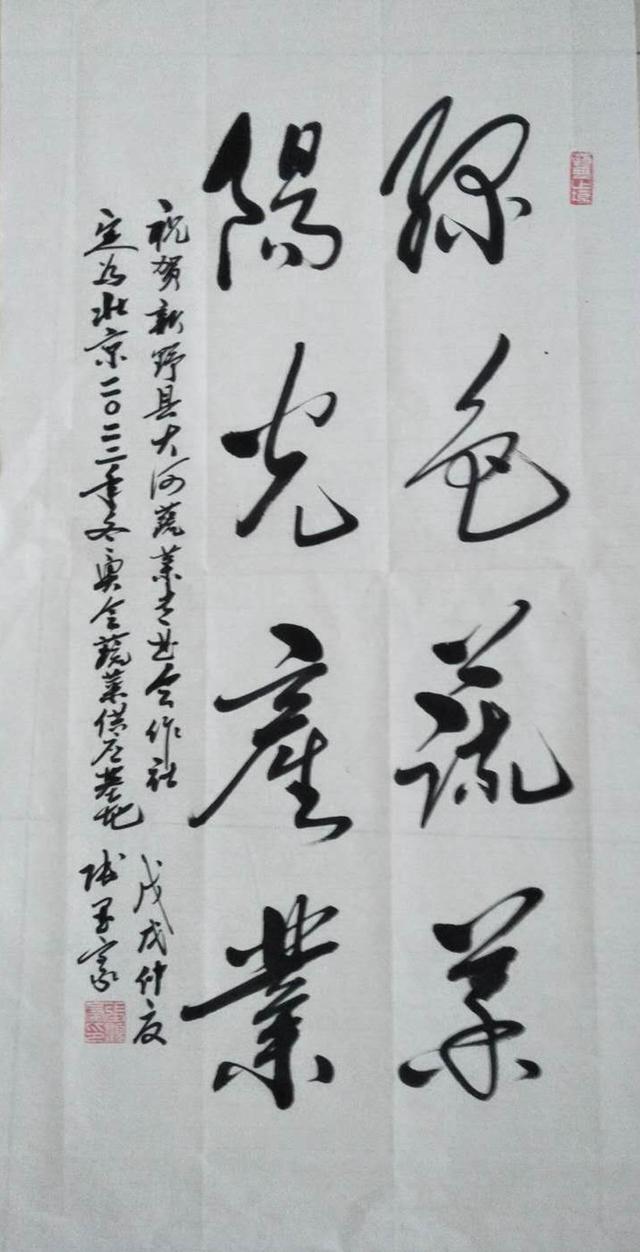 綠色蔬菜
陽光產業
祝贺新野县大河蔬菜专业合作社
定为北京二〇二二年冬奥会蔬菜供应基地
戊戌仲夏